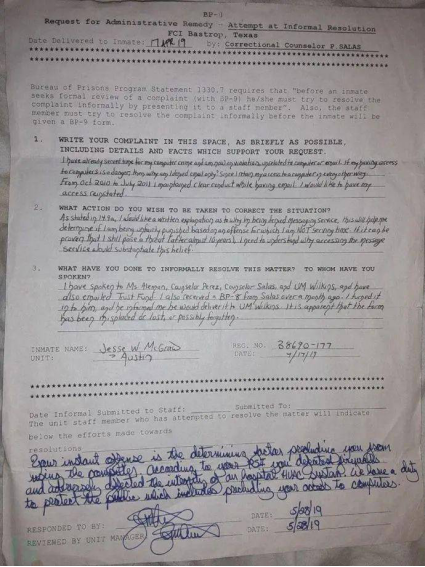 BP-8
Request for Administrative Remedy - Attempt at Informal Resolution
FCI Bastrop, Texas
Date Delivered to Inmate: 17 APR 19 by: Correctional Counselor P. SALAS
Bureau of Prisons Program Statement 1330.7 requires that "before an inmate
seeks formal review of a complaint (with BP-9) he/she must try to resolve the
complaint informally by presenting it to a staff member". Also, the staff
member must try to resolve the complaint informally before the inmate will be
given a BP-9 form.
1. WRITE YOUR COMPLAINT IN THIS SPACE, AS BRIEFLY AS POSSIBLE,
INCLUDING DETAILS AND FACTS WHICH SUPPORT YOUR REQUEST.
I have already served time for my computer crime and
access to computers is a danger, then why
From Oct 2010 to July 2011 I maintained clear conduct while having email. I would like to have my
access reinstated.
2. WHAT ACTION DO YOU WISH TO BE TAKEN TO CORRECT THE SITUATION?
As stated in I would like a written explanation as to why I'm being denied messaging service, this will help me
determine if I am being unfairly punished based on an offense for which I am NOT serving time. If it can be
proven that I still pose a threat (after almost 10 years), I need to understand why accessing the message
service would substantiate this belief.
3. WHAT HAVE YOU DONE TO INFORMALLY RESOLVE THIS MATTER? TO WHOM HAVE YOU
SPOKEN?
I have spoken to Ms. Counselor Perez, Counselor Salas, and UM Wilkins, and have
also emailed Trust Fund. I also received a BP-8 form Salas over a month ago. I turned it
in to him, and he informed me he would deliver it to UM Wilkins. It is apparent that the form
has been misplaced or lost, or possibly forgotten.
INMATE NAME: Jesse W. McGraw REG. NO. 38690-177
UNIT: Austin DATE: 4/17/19
Date Informal Submitted to Staff: Submitted To:
The unit staff member who has attempted to resolve the matter will indicate
below the efforts made towards
resolutions
Your instant offense is the determining factor precluding you from
using the computer. According to your PSI you defeated firewalls
and affected the integrity of an hospital HVAC system. We have a duty
to protect the public which includes precluding your access to computers.
RESPONDED TO BY: DATE: 5/28/19
REVIEWED BY UNIT MANAGER DATE: 5/28/19